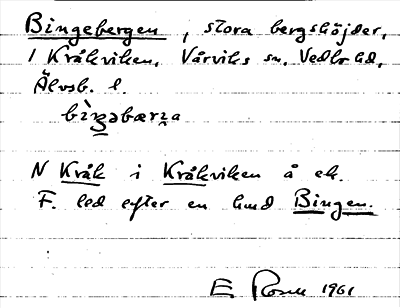 Bingebergen, stora bergshöjder,
1 Kråkviken, Vårviks sn. Vedbo hd,
Älvsb. l.
bìŋəbærɲa
N Kråk i Kråkviken å ek.
F. led efter en hmd Bingen.
E Rosell 1961